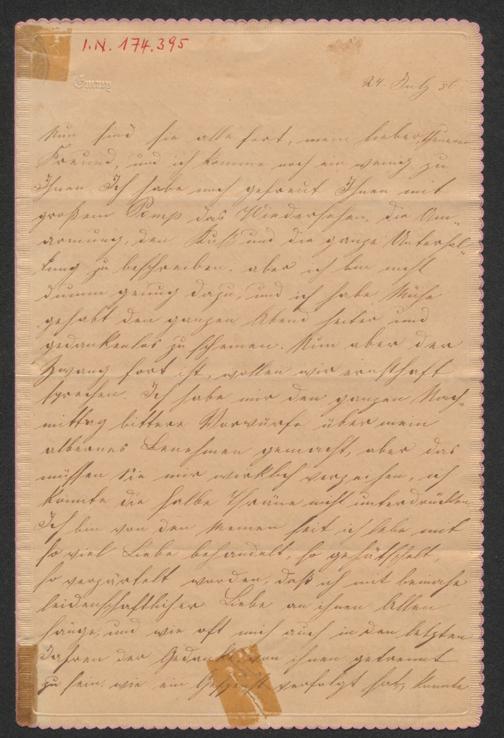 I.N. 174.395
24. July 86
Nun sind sie alle fort, mein lieber, theurer
Freund, und ich komme noch ein wenig zu
Ihnen. Ich habe mich gefreut Ihnen mit
großem Pomp das Wiedersehen, die Um-
armung, den Kuß und die ganze Unterhal-
tung zu beschreiben, aber ich bin nicht
dumm genug dazu, und ich habe Mühe
gehabt den ganzen Abend heiter und
gedankenlos zu scheinen. Nun aber der
Zwang fort ist, wollen wir ernsthaft
sprechen. Ich habe mir den ganzen Nach-
mittag bittere Vorwürfe über mein
albernes Benehmen gemacht, aber das
müssen Sie mir wirklich verzeihen, ich
konnte die halbe Thräne nicht unterdrücken.
Ich bin von den Meinen seit ich lebe mit
so viel Liebe behandelt, so gehätschelt,
so verzärtelt worden, daß ich mit beinahe
leidenschaftlicher Liebe an ihnen Allen
hänge, und wie oft mich auch in den letzten
Jahren der Gedanke, von ihnen getrennt
zu sein, wie ein Gespenst verfolgt hat, konnte